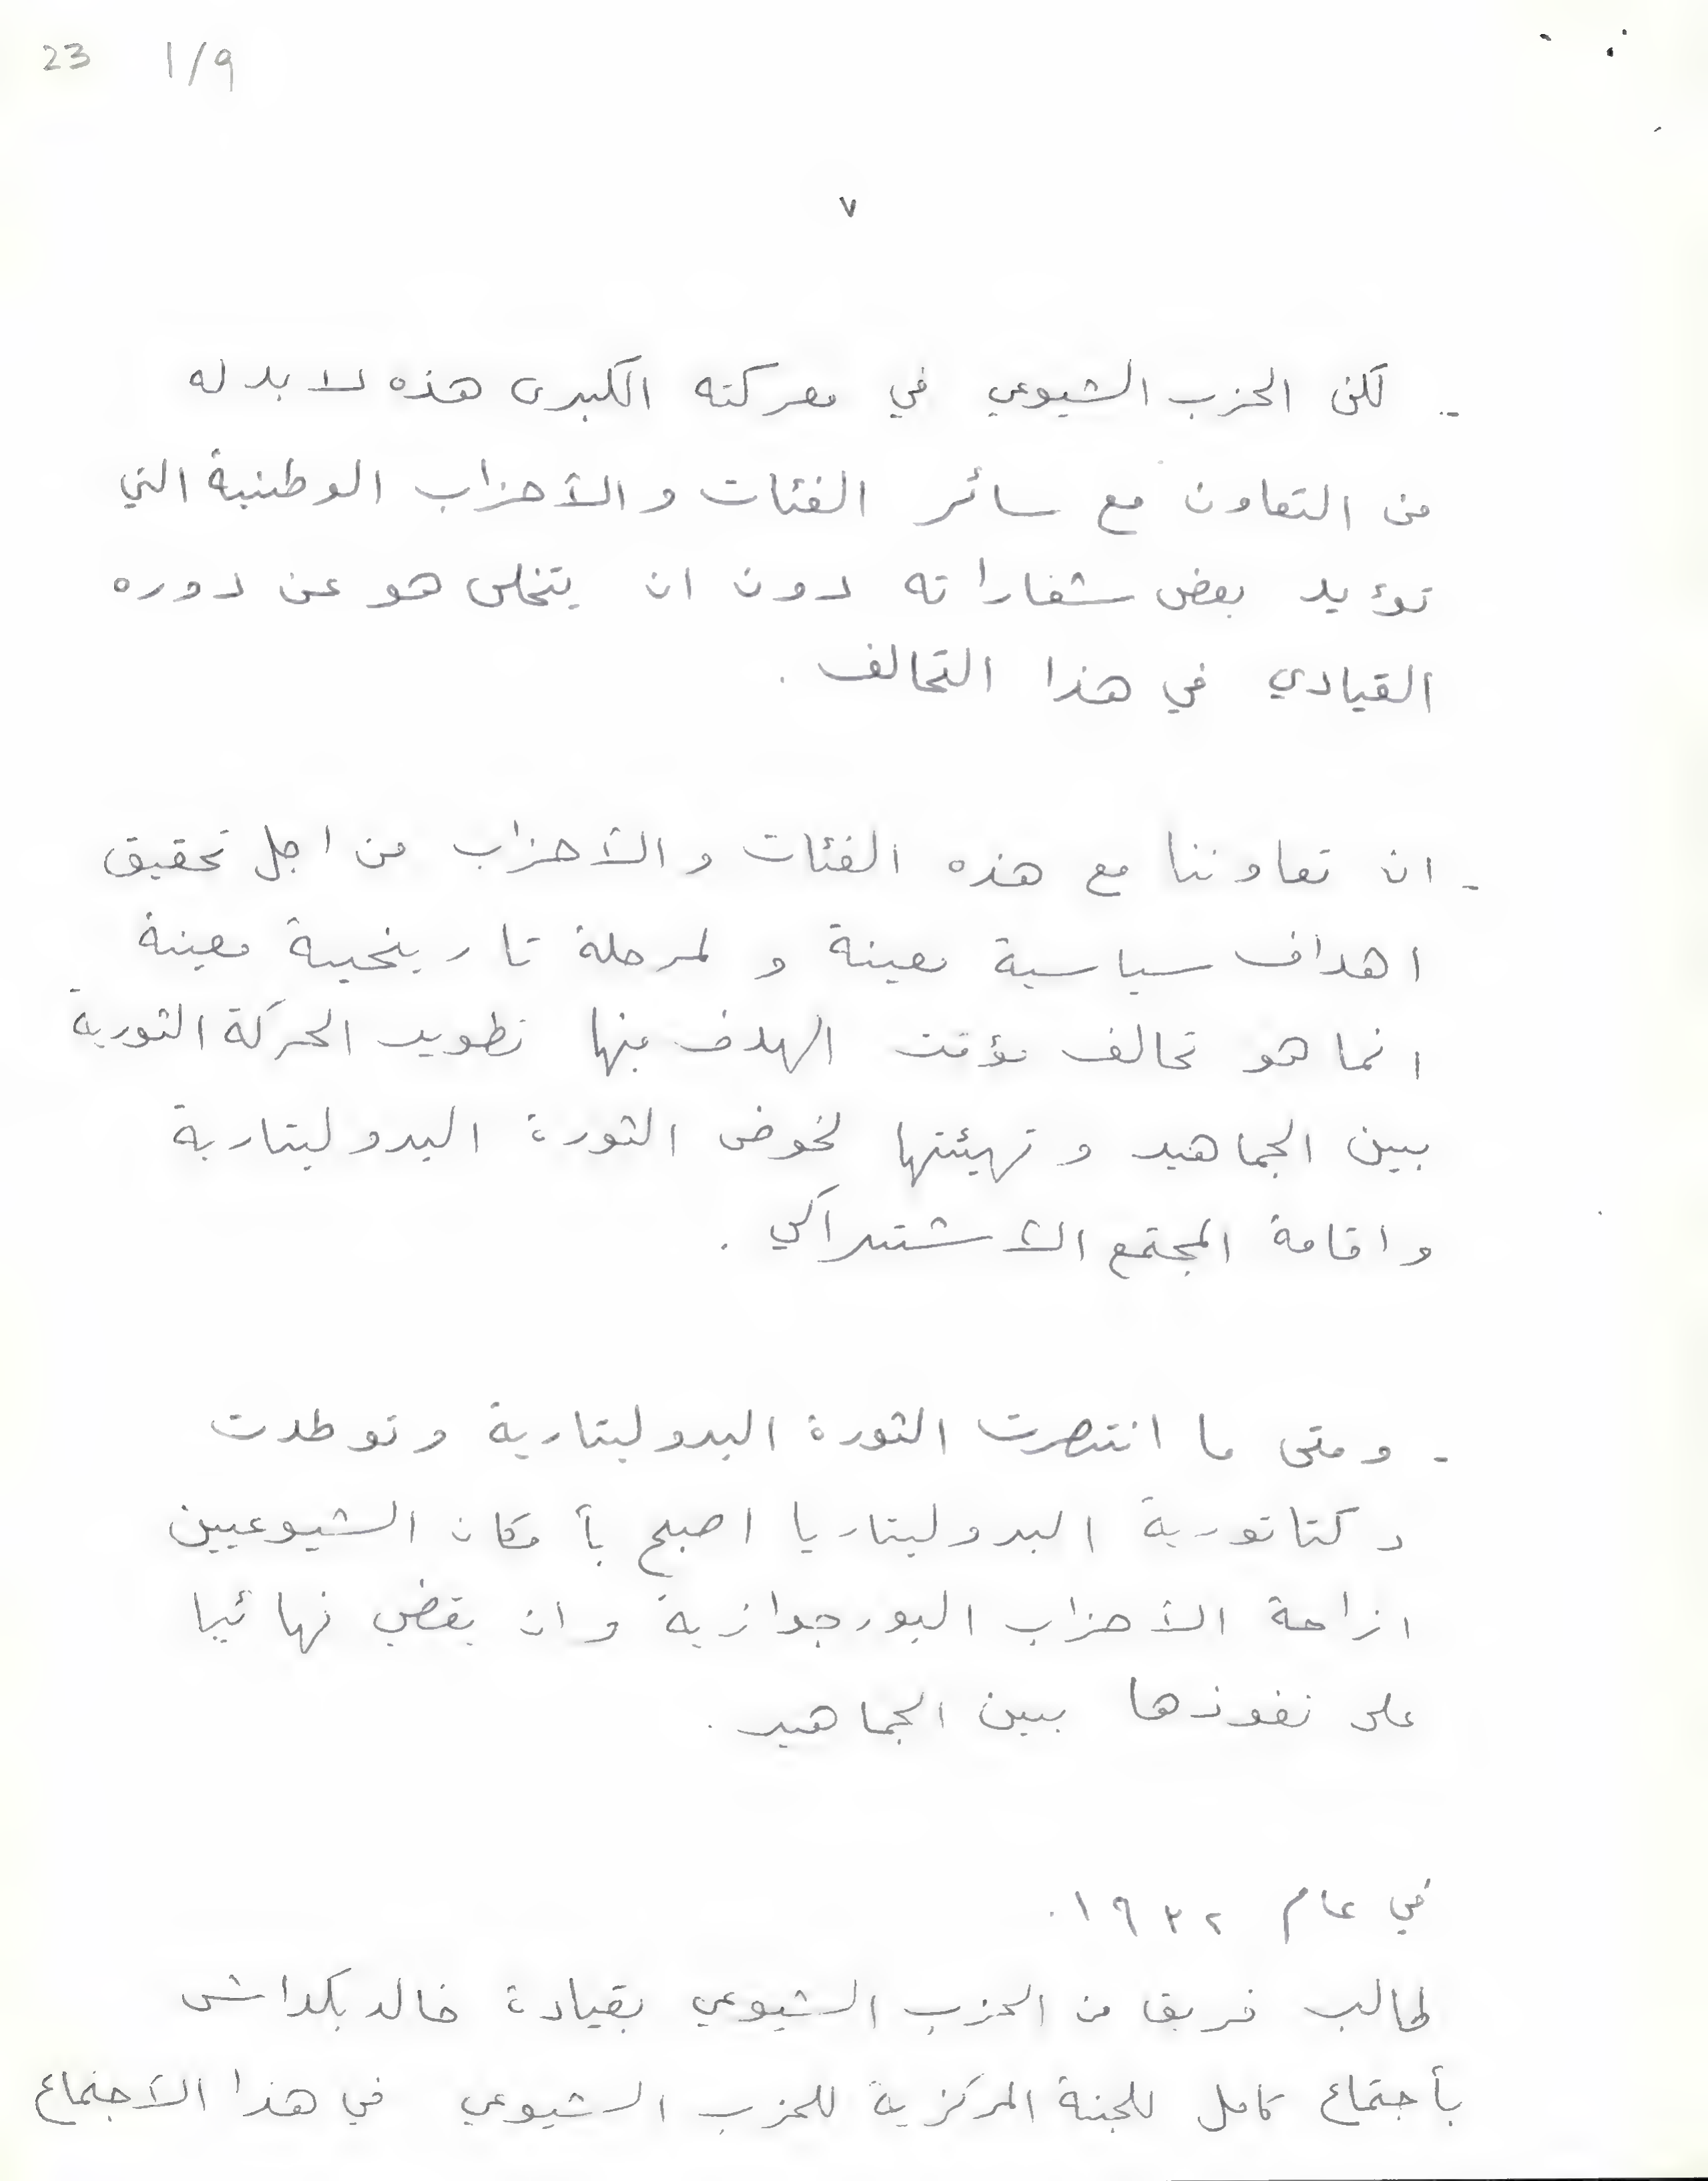 23 1/9
٧
- لكن الحزب الشيوعي في معركته الكبرى هذه لا بد له
من التعاون مع سائر الفئات والأحزاب الوطنية التي
تؤيد بعض شعاراته دون ان يتخلى هو عن دوره
القيادي في هذا التحالف .
- ان تعاوننا مع هذه الفئات والأحزاب من اجل تحقيق
اهداف سياسية معينة و لمرحلة تاريخية معينة
انما هو تحالف مؤقت الهدف منها تطوير الحركة الثورية
بين الجماهير وتهيئتها لخوض الثورة البروليتارية
واقامة المجتمع الأشتراكي .
- ومتى ما انتصرت الثورة البروليتارية وتوطدت
دكتاتورية البروليتاريا اصبح بأمكان الشيوعيين
ازاحة الأحزاب البورجوازية وان يقضى نهائيا
على نفوذها بين الجماهير .
في عام ١٩٣٢.
طالب فريق من الحزب الشيوعي بقيادة خالد بكداش
بأجتماع كامل للجنة المركزية للحزب الشيوعي في هذا الأجتماع